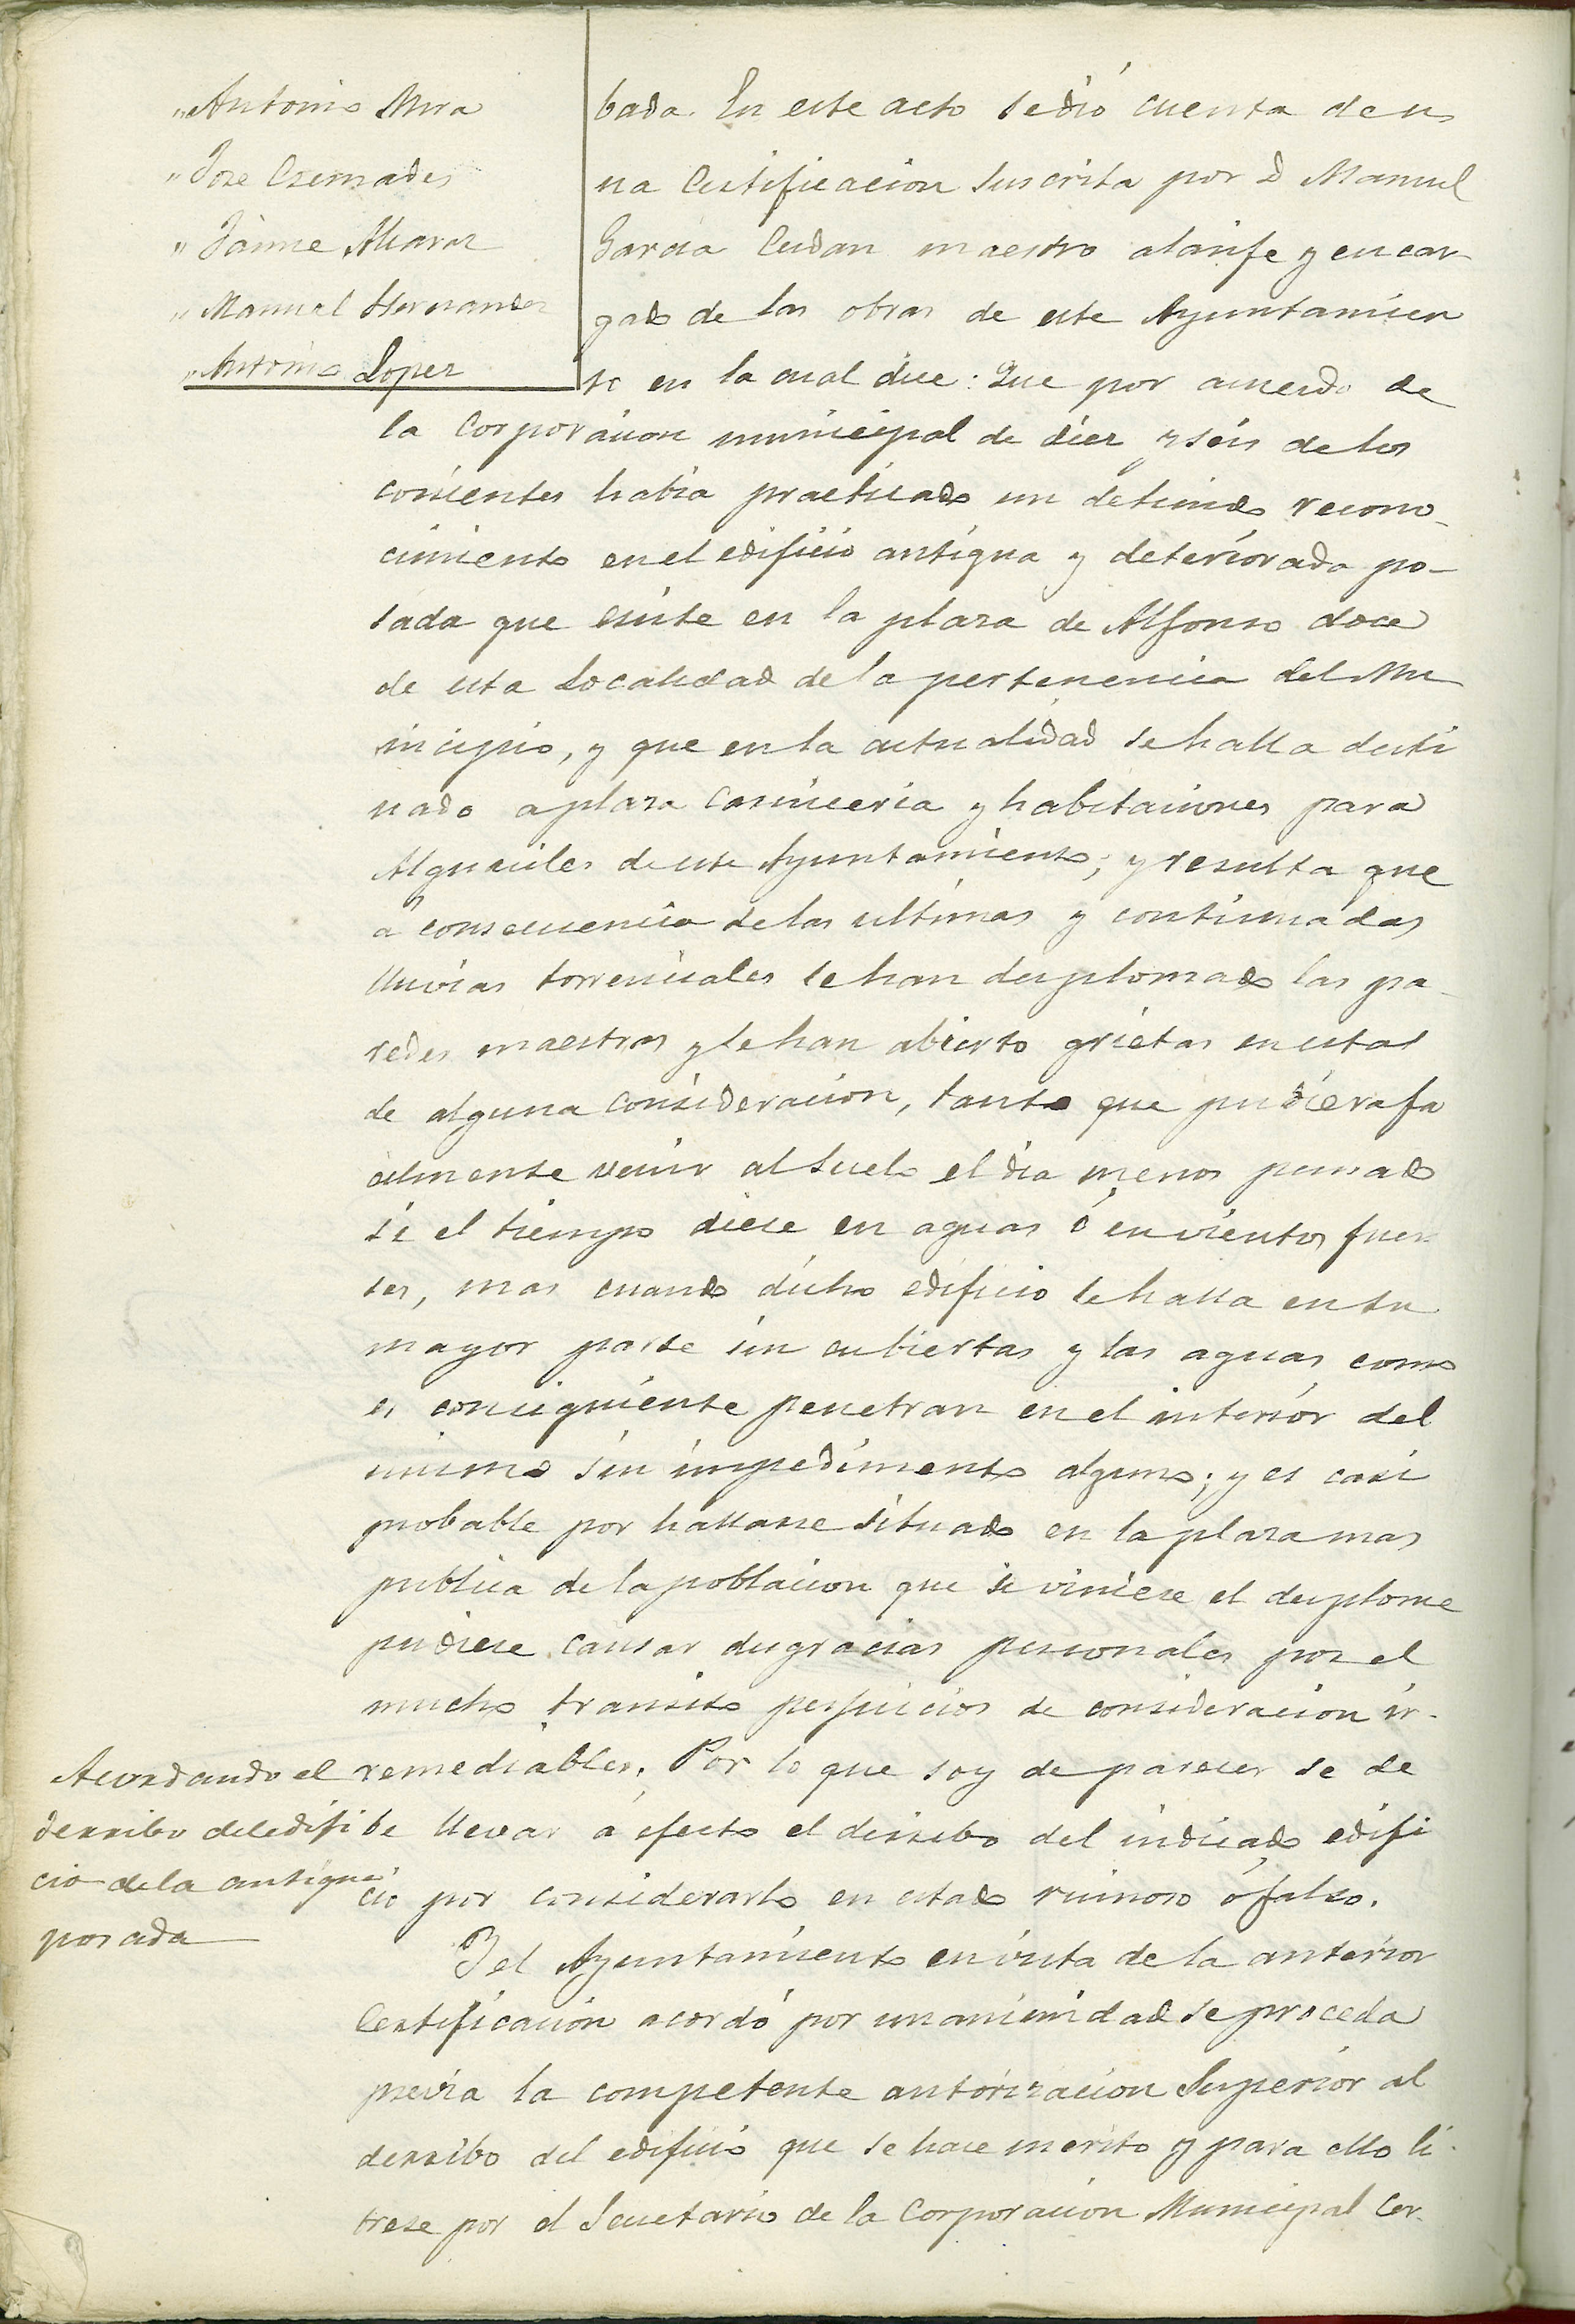 " Antonio Mira
" Jose Cremades
" Jaime Alvarez
" Manuel Hernandez
" Antonio Lopez
bada. En este acto se dió cuenta de u-
na Certificacion suscrita por D Manuel
Garcia maestro alarife y encar-
gado de las obras de este Ayuntamien
to en la cual dice: Que por acuerdo de
la Corporacion municipal de diez y seis de los
corrientes habia practicado un detenido recono-
cimiento en el edificio antigua y deteriorada po-
sada que existe en la plaza de Alfonso doce
de esta Localidad de la pertenencia del Mu
nicipio, y que en la actualidad se halla desti
nado a plaza Carniceria y habitaciones para
Alguaciles de este Ayuntamiento; y resulta que
á consecuencia de las ultimas y continuadas
lluvias torrenciales se han desplomado las pa-
redes maestras y se han abierto grietas en estas
de alguna consideracion, tanto que pudiera fa
cilmente venir al suelo el dia menos pensado
si el tiempo diese en aguas ó en vientos fuer
tes, mas cuando dicho edificio se halla en su
mayor parte sin cubiertas y las aguas como
es consiguiente penetran en el interior del
mismo sin impedimento alguno; y es casi
probable por hallarse situado en la plaza mas
publica de la poblacion que si viniese el desplome
pudiese causar desgracias personales por el
mucho transito perjuicios de consideracion ir-
remediables. Por lo que soy de parecer se de
be llevar á efecto el derribo del indicado edifi
cio por considerarlo en estado ruinoso ó falso.
Acordando el
derribo del edifi
cio de la antigua
posada
Y el Ayuntamiento en vista de la anterior
Certificacion acordó por unanimidad se proceda
previa la competente autorizacion Superior al
derribo del edificio que se hace merito y para ello li-
brese por el Secretario de la Corporacion Municipal Cer-